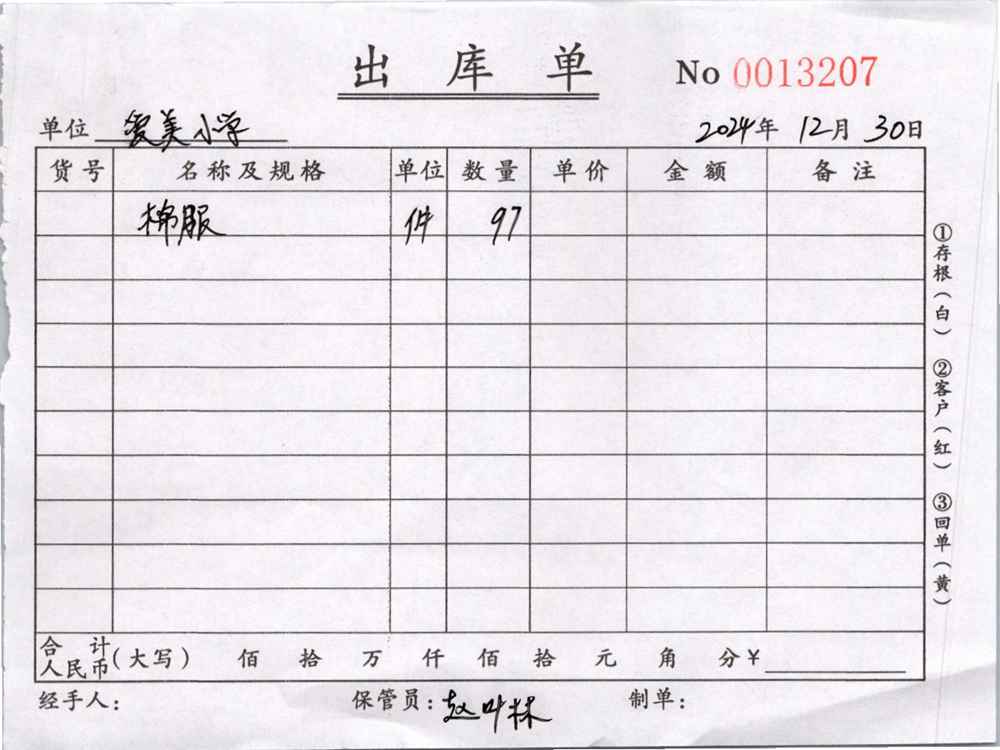 出库单
No 0013207
单位 爱美小学
2024年 12月 30日
货号 名称及规格 单位 数量 单价 金额 备注
棉服 件 97
合计人民币(大写) 佰 拾 万 仟 佰 拾 元 角 分¥
经手人： 保管员：赵叶林 制单：
①存根(白) ②客户(红) ③回单(黄)